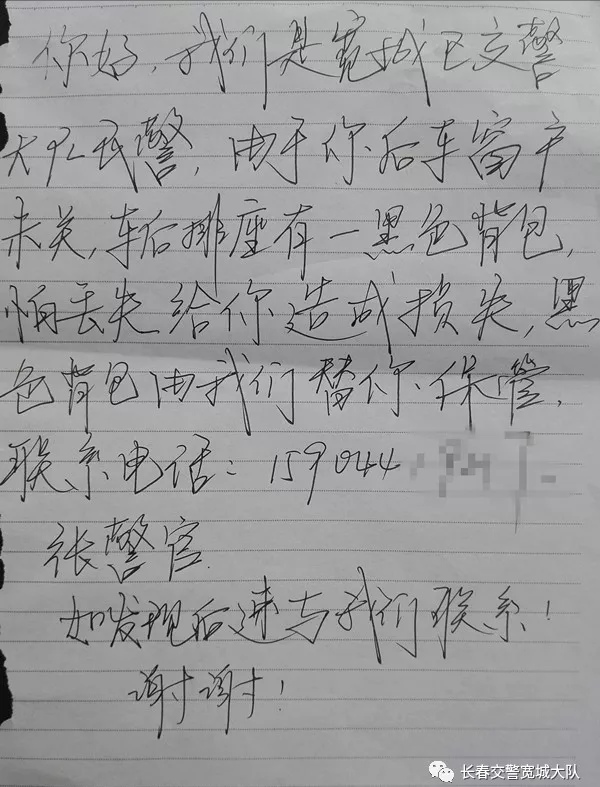 你好，我们是宽城区交警
大队民警，由于你后车窗户
未关，车后排座有一黑色背包，
怕丢失给你造成损失，黑
色背包由我们替你保管，
联系电话：159044
张警官
如发现后速与我们联系！
谢谢！
长春交警宽城大队